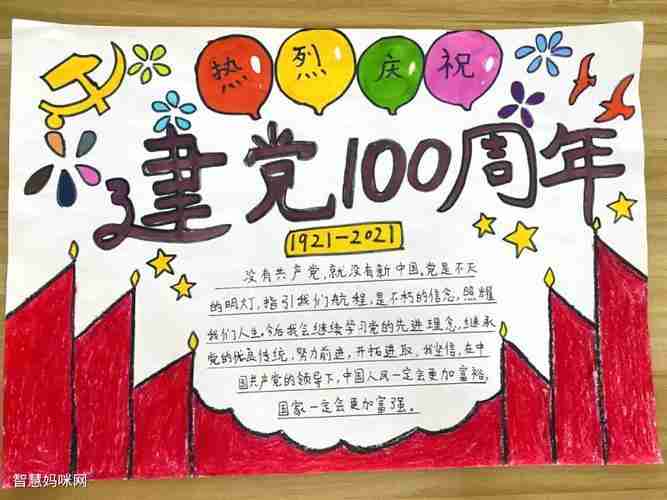 热烈庆祝
建党100周年
1921-2021
没有共产党,就没有新中国。党是不灭
的明灯,指引我们航程,是不朽的信念,照耀
我们人生。今后我会继续学习党的先进理念,继承
党的优良传统,努力前进,开拓进取,我坚信,在中
国共产党的领导下,中国人民一定会更加富裕,
国家一定会更加富强。
智慧妈咪网